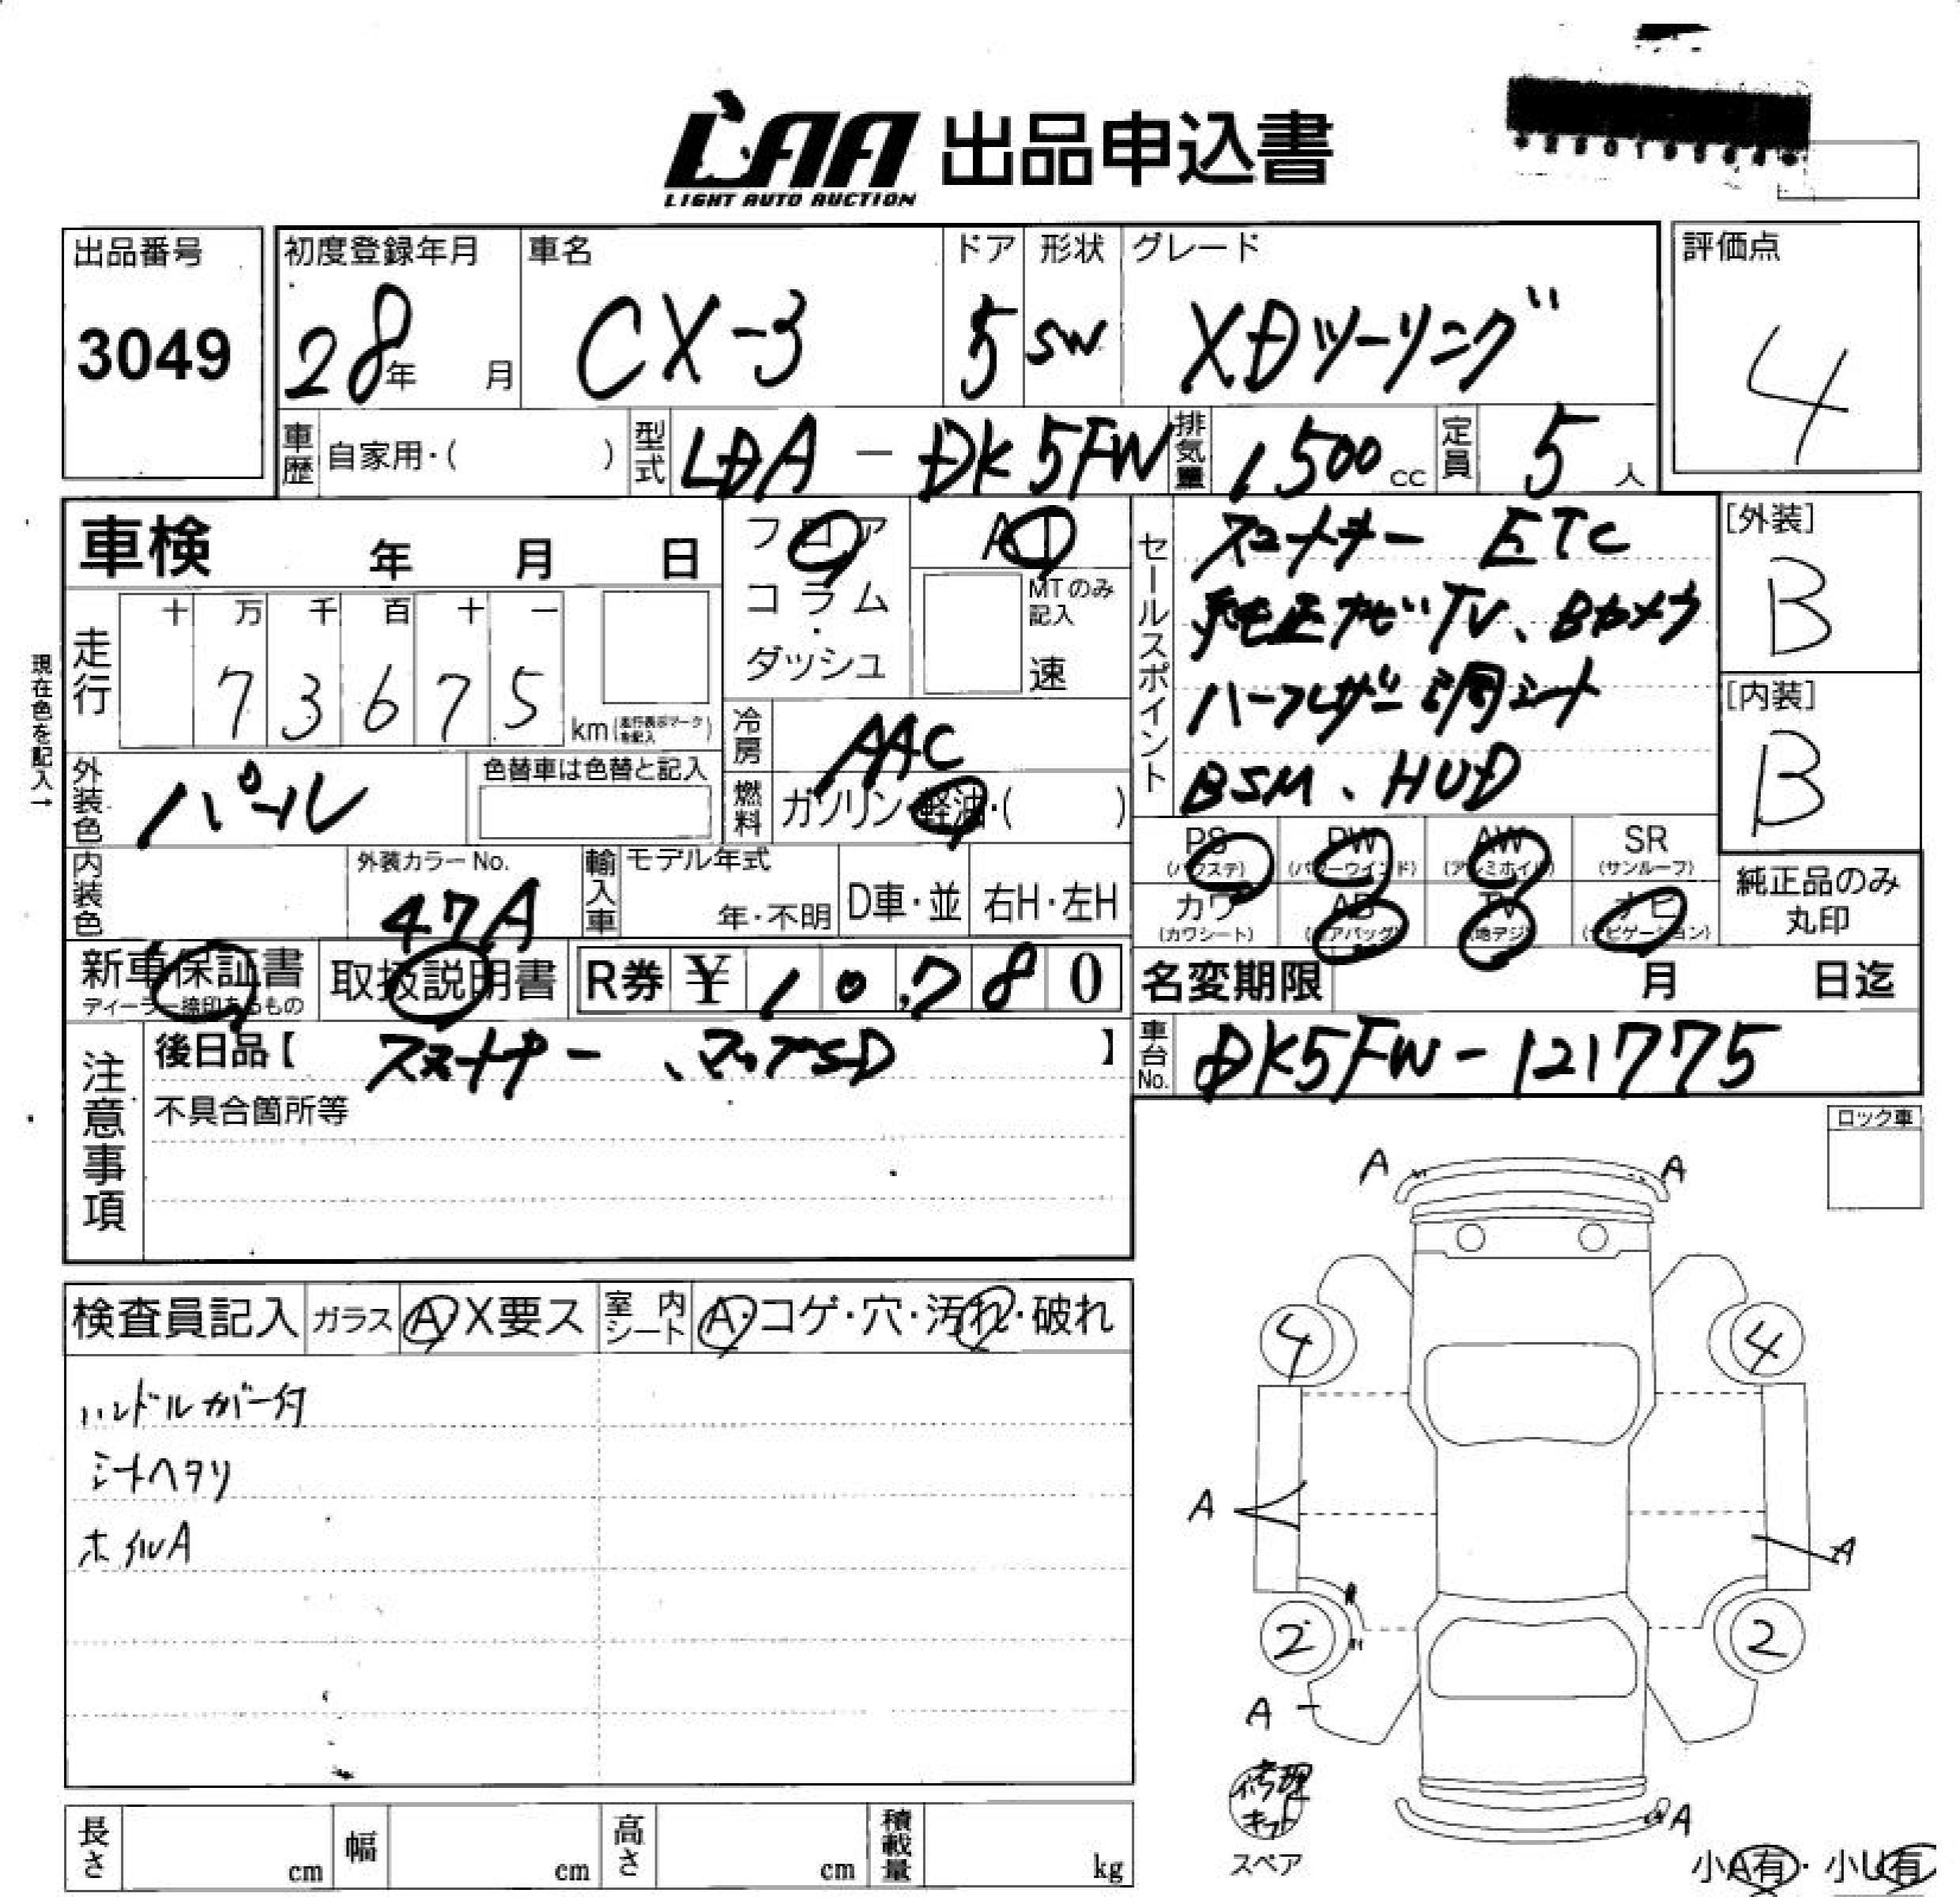 LAA 出品申込書
LIGHT AUTO AUCTION
出品番号
3049
初度登録年月
28年 月
車名
CX-3
ドア
5
形状
SW
グレード
XDツーリング
評価点
4
車歴 自家用・( )
型式 LDA-DK5FW
排気量 1500cc
定員 5人
車検 年 月 日
走行
十 万 千 百 十 一
7 3 6 7 5
km(走行表示マークを記入)
フロア
コラム
・
ダッシュ
AT
MTのみ記入
速
冷房 AAC
燃料 ガソリン・軽油・( )
セールスポイント
スマートキー ETC
純正ナビTV、Bカメラ
ハーフレザー調シート
BSM、HUD
[外装]
B
[内装]
B
現在色を記入→
外装色 パール
色替車は色替と記入
内装色
外装カラーNo.
47A
輸入車
モデル年式
年・不明
D車・並
右H・左H
PS (パワステ)
PW (パワーウインド)
AW (アルミホイル)
SR (サンルーフ)
カワ (カワシート)
AB (エアバッグ)
TV (地デジ)
ナビ (ナビゲーション)
純正品のみ
丸印
新車保証書
ディーラー捺印あるもの
取扱説明書
R券 ¥ 10,780
名変期限 月 日迄
注意事項
後日品【 スマートキー、マップSD 】
不具合箇所等
車台No. DK5FW-121775
ロック車
検査員記入
ガラス A X要ス
室内シート A・コゲ・穴・汚れ・破れ
ハンドルカバー付
シートヘタリ
ホイルA
A
A
4
4
A
A
A
2
2
A
修理
キット
スペア
A
小A有・小U有
長さ cm
幅 cm
高さ cm
積載量 kg